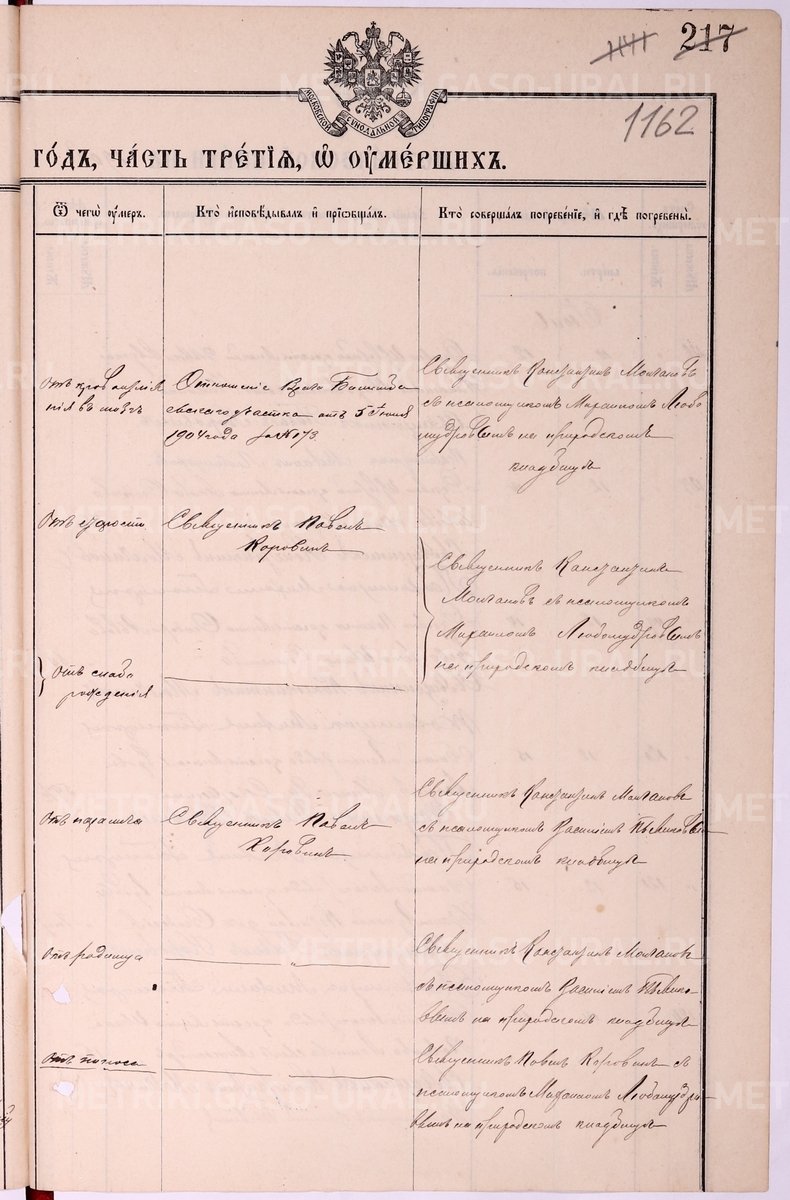 217
1162
МОСКОВСКОЙ СѴНОДАЛЬНОЙ ТИПОГРАФІИ
ГО́ДЪ, ЧА́СТЬ ТРЕ́ТІЯ, Ѡ̑ ОУ҆МЕ́РШИХЪ.
Ѿ чегѡ̀ оу҆́меръ.
Кто̀ и҆сповѣ́дывалъ и҆ прїѡбща́лъ.
Кто̀ соверша́лъ погребе́нїе, и҆ гдѣ̀ погребены̀.
отъ кровоизлія
нія въ мозгъ
Отношеніе Врача
участка отъ 5 Іюня
1904 года за № 173.
Священникъ Константинъ Молчановъ
съ псаломщикомъ Любо
мудровымъ на приходскомъ
кладбищѣ
Отъ старости
Священникъ Павелъ
Коровинъ
Священникъ Константинъ
Молчановъ съ псаломщикомъ
Любомудровымъ
на приходскомъ кладбищѣ
отъ слабо
рожденія
отъ паралича
Священникъ Павелъ
Коровинъ
Священникъ Константинъ Молчановъ
съ псаломщикомъ Василіемъ
на приходскомъ кладбищѣ
отъ родимца
"
Священникъ Константинъ Молчановъ
съ псаломщикомъ Василіемъ
на приходскомъ кладбищѣ
отъ поноса
Священникъ Павелъ Коровинъ съ
псаломщикомъ Любомудро
вымъ на приходскомъ кладбищѣ
METRIKI.GASO-URAL.RU